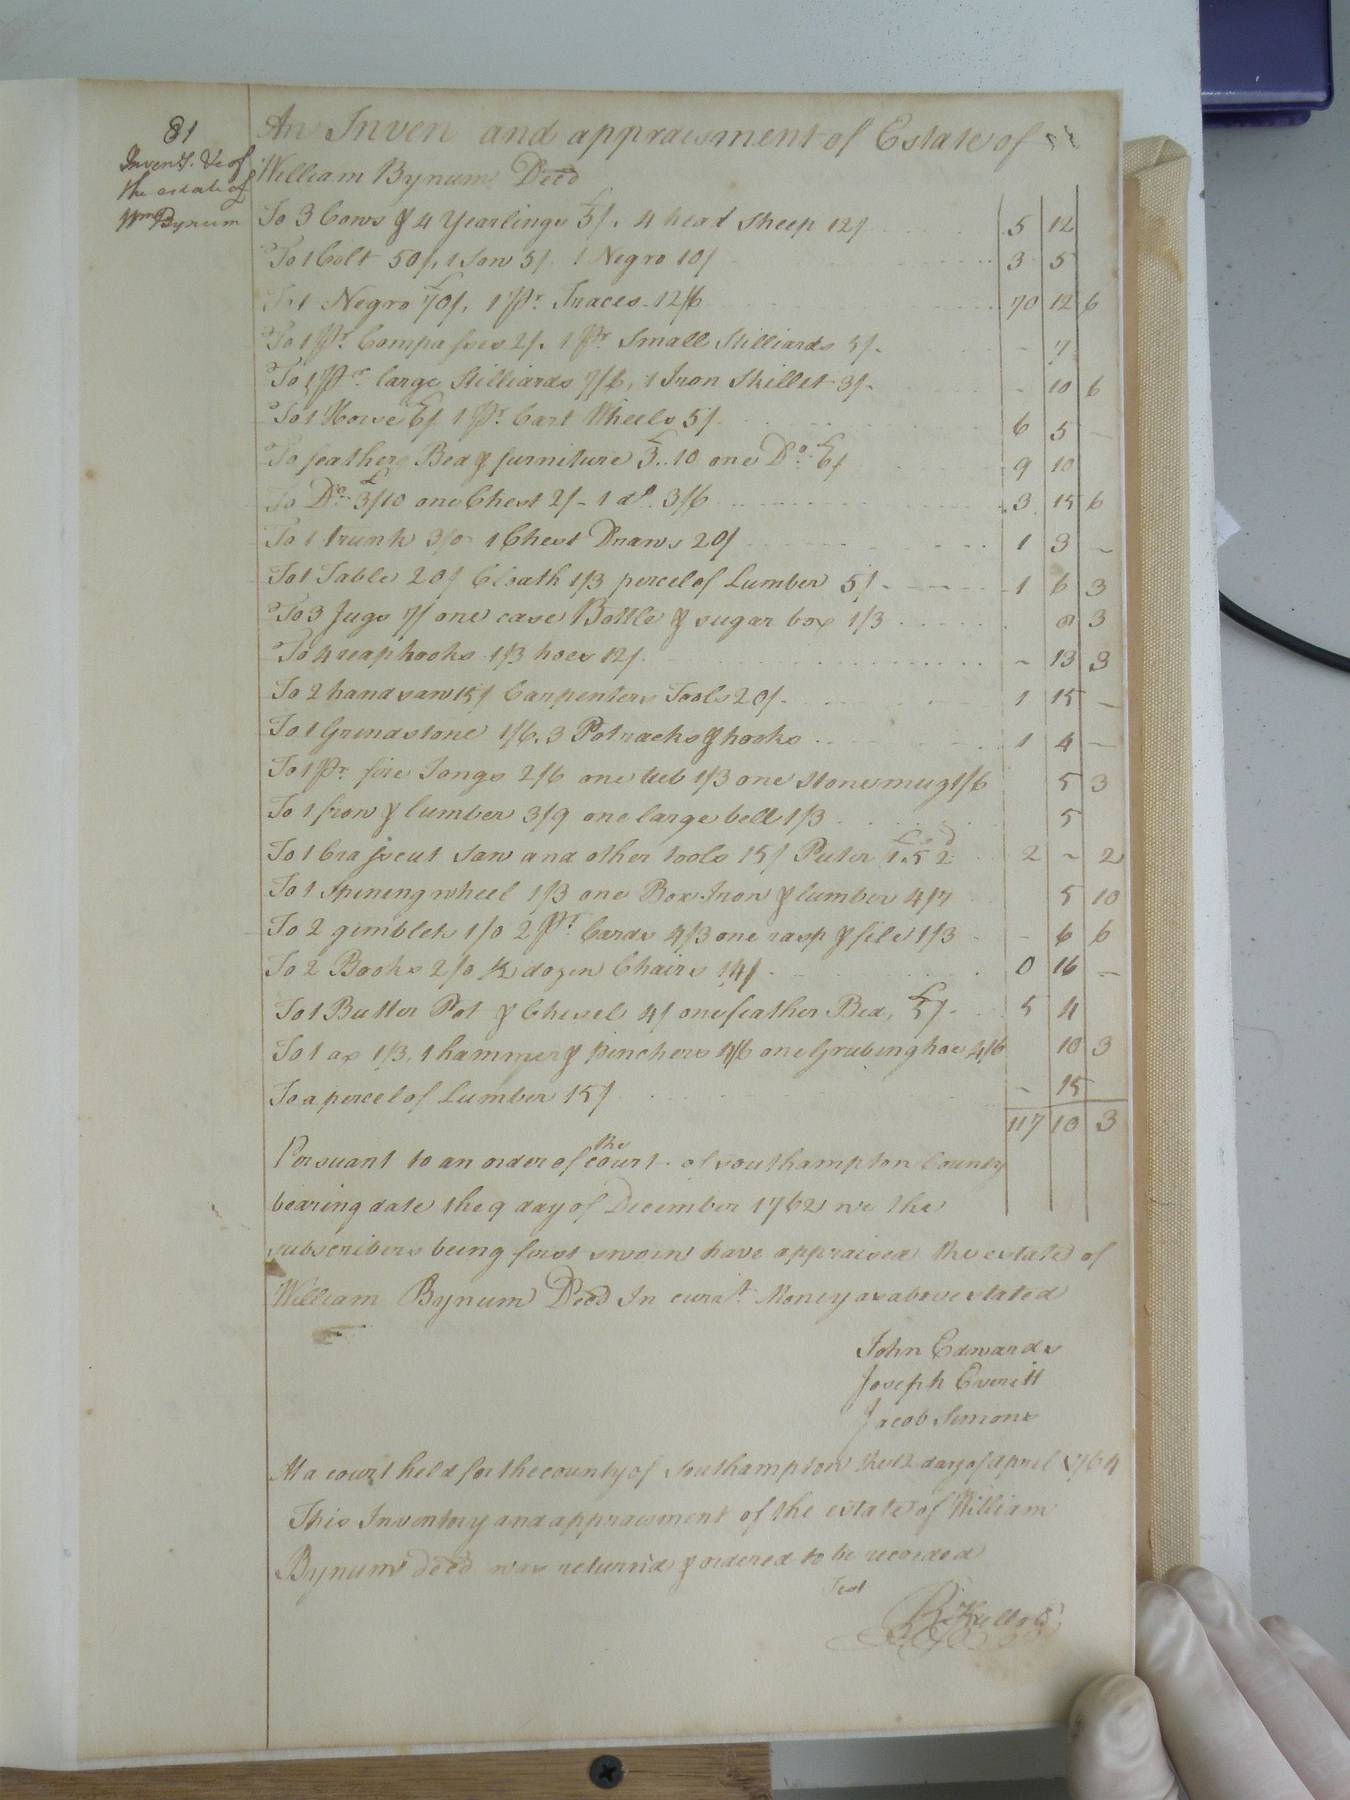 81
Invent. &c of
the estate of
Wm Bynum
An Inven and appraisment of Estate of
William Bynum Decd
To 3 Cows & 4 Yearlings £5/. 4 head Sheep 12/ 5 12
To 1 Colt 50/, 1 Saw 5/ 1 Negro 10/ 3 5
To 1 Negro £70/, 1 Pr. Traces 12/6 70 12 6
To 1 Pr Compasses 2/. 1 Pr Small Stilliards 5/. - 7
To 1 Pr. large Stilliards 7/6, 1 Iron Skillet 3/. - 10 6
To 1 Horse £6/ 1 Pr. Cart Wheels 5/. 6 5 -
To feather Bed & furniture £3..10 one Do. £6/ 9 10
To Do. £3/10 one Chest 2/- 1 do. 3/6 3 15 6
To 1 trunk 3/0 1 Chest Draws 20/ 1 3 -
To 1 Table 20/ Cloath 1/3 percel of Lumber 5/. 1 6 3
To 3 Jugs 7/ one case Bottle & sugar box 1/3 8 3
To 4 reaphooks 1/3 hoes 12/. - 13 3
To 2 hand saw 15/ Carpenters Tools 20/. 1 15 -
To 1 Grindstone 1/6. 3 Potracks & hooks 1 4 -
To 1 Pr. fire Tongs 2/6 one tub 1/3 one stone mug 1/6 5 3
To 1 frow & lumber 3/9 one large bell 1/3 5
To 1 crasscut Saw and other tools 15/ Puter £1.5 2d 2 - 2
To 1 Spining wheel 1/3 one Box Iron & lumber 4/7 5 10
To 2 gimblets 1/0 2 Pr. Cards 4/3 one rasp & file 1/3 - 6 6
To 2 Books 2/0 ½ dozen Chairs 14/. 0 16 -
To 1 Butter Pot & Chesel 4/ one feather Bed, £5/. 5 4
To 1 ax 1/3, 1 hammer & pinchers 4/6 one Grubing hoe 4/6 10 3
To a percel of Lumber 15/ - 15
117 10 3
Persuant to an order of the court of Southampton County
bearing date the 9 day of December 1762 we the
subscribers being first sworn have appraised the estate of
William Bynum Decd In curnt. Money as above stated
John Edwards
Joseph Everitt
Jacob Simons
At a court held for the county of Southampton the 12 day of April 1764
This Inventory and appraisment of the estate of William
Bynum decd was returnd & ordered to be recorded
Test
R Kello C